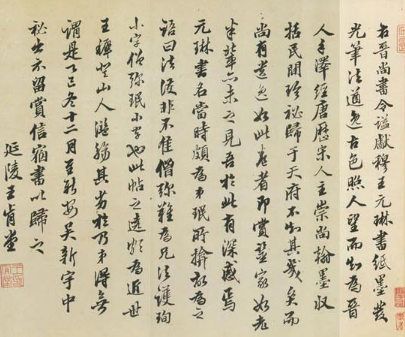 右晉尚書令諡獻穆王元琳書紙墨發
光筆法遒逸古色照人望而知為晉
人手澤經唐歷宋人主崇尚翰墨收
括民間珍秘歸于天府不知其幾矣而
尚有遺逸如此卷者即賞鑒家如老
米輩亦未之見吾於此有深感焉
元琳書名當時頗為弟珉所揜故為之
語曰法護非不佳僧彌難為兄法護珣
小字僧彌珉小字也此帖之為近世
王穉登山人游揚其於乃弟得無
謂是乙巳冬十二月至新安吳新宇中
秘出示留賞信宿書以歸之
延陵王肯堂